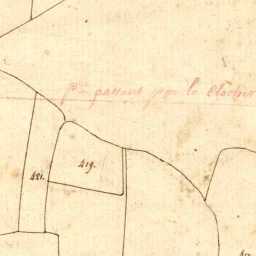 passant par le Clocher
419.
421.